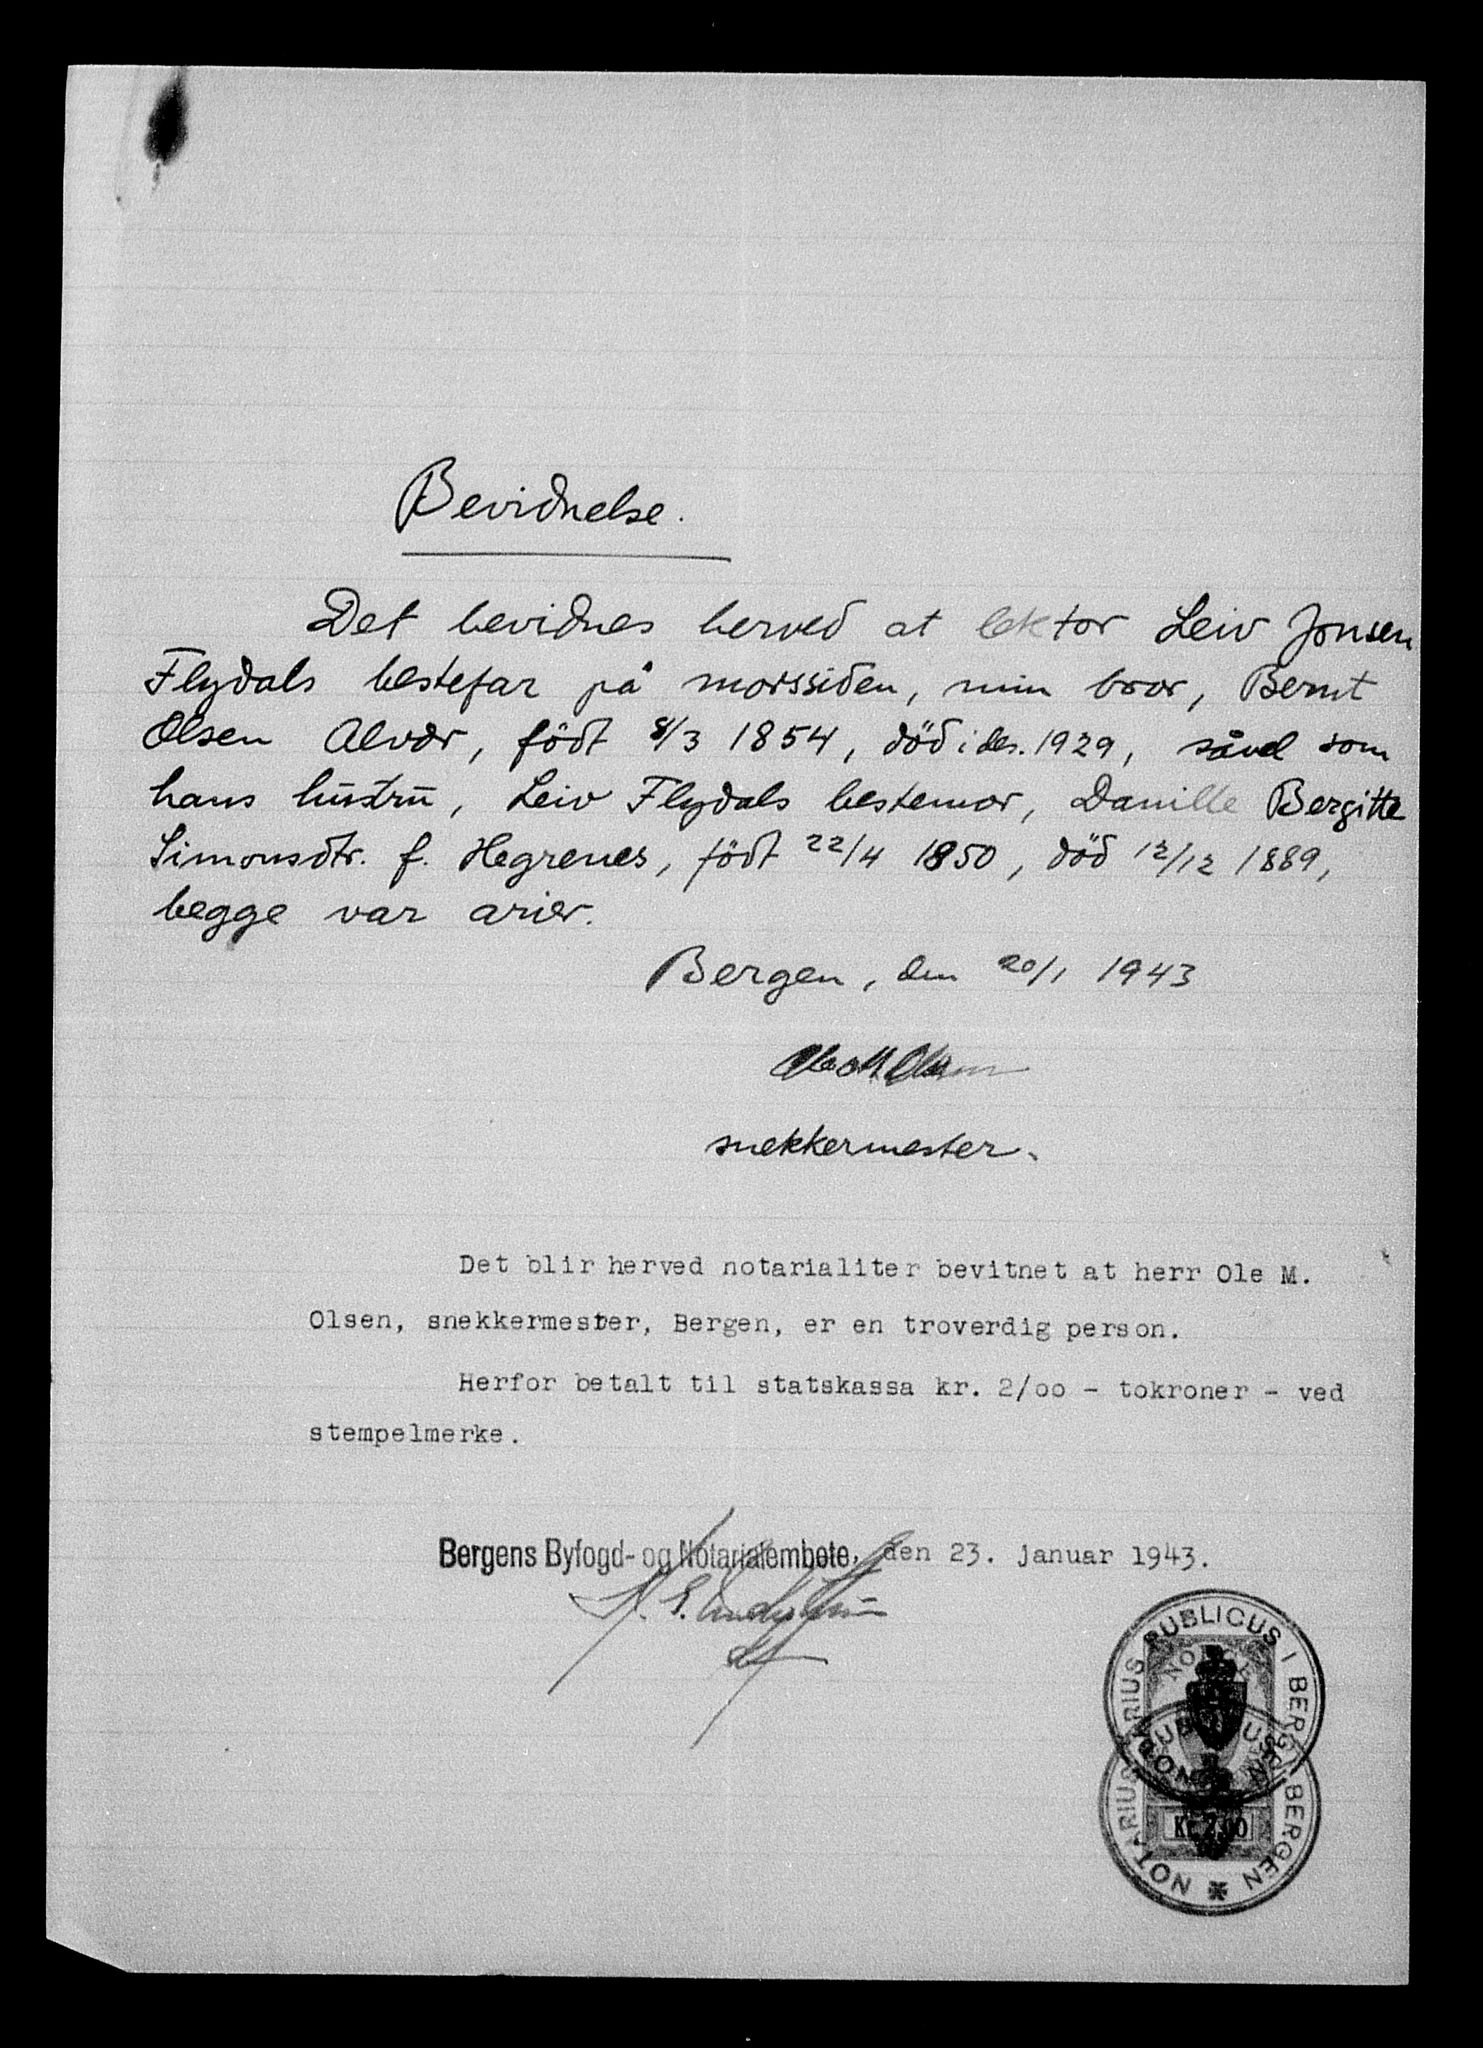 Bevidnelse.
Det bevidnes herved at lektor Leiv Jonsen
Flydals bestefar på morssiden, min bror, Bernt
Olsen Alvær, födt 8/3 1854, död i des. 1929, såvel som
hans hustru, Leiv Flydals bestemor, Danille Bergitte
Simonsdtr. f. Hegrenes, födt 22/4 1850, död 12/12 1889,
begge var arier.
Bergen, den 20/1 1943
Ole M Olsen
snekkermester.
Det blir herved notarialiter bevitnet at herr Ole M.
Olsen, snekkermester, Bergen, er en troverdig person.
Herfor betalt til statskassa kr. 2/oo - tokroner - ved
stempelmerke.
Bergens Byfogd- og Notarialembete, den 23. januar 1943.
NOTARIUS PUBLICUS I BERGEN
NORGE
Kr. 2.00
NOTARIUS PUBLICUS I BERGEN